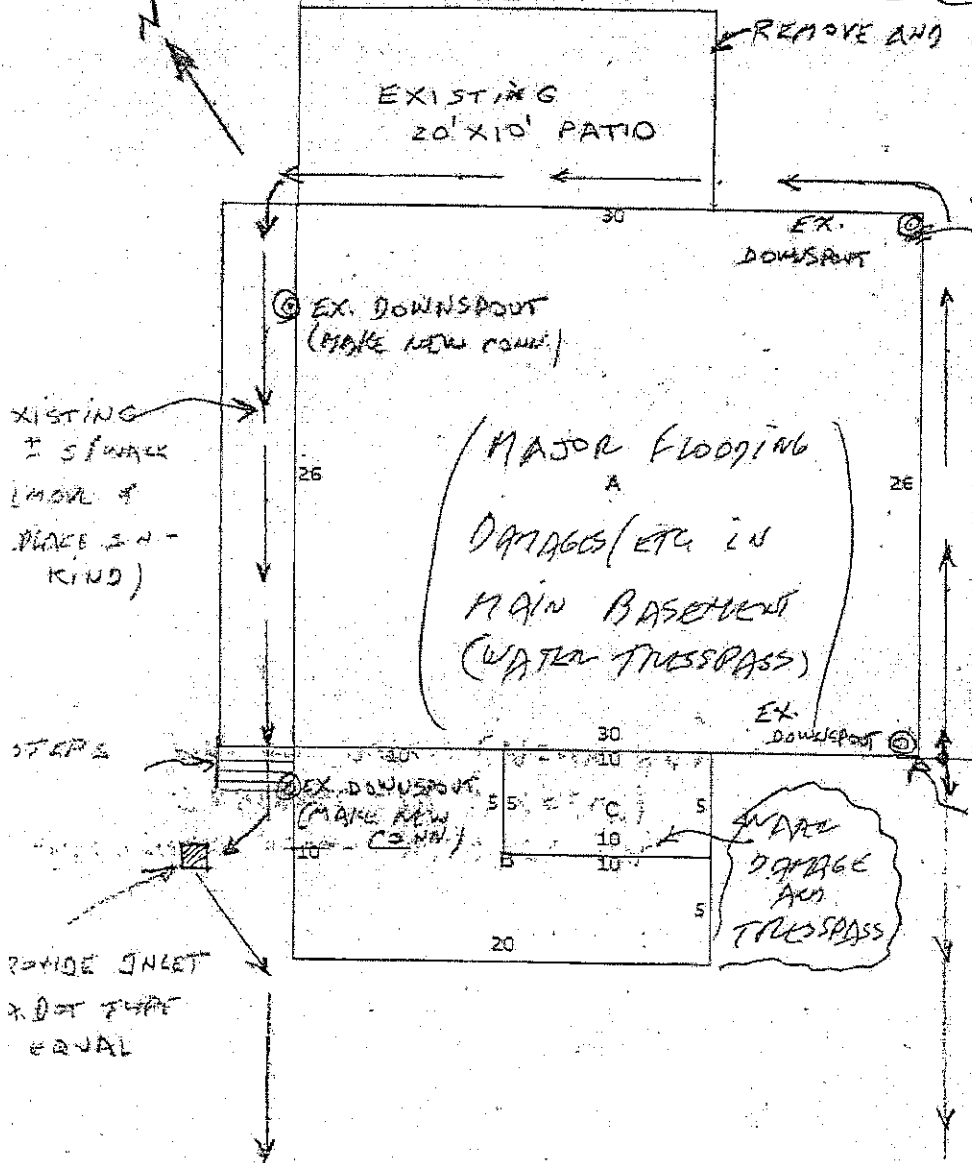 N
REMOVE AND
EXISTING
20' X 10' PATIO
30
EX.
DOWNSPOUT
EX. DOWNSPOUT
(MAKE NEW CONN.)
XISTING
± S/WALK
PLACE IN-
KIND)
26
(MAJOR FLOODING
A
DAMAGES/ETC IN
MAIN BASEMENT
(WATER TRESSPASS)
26
EX.
DOWNSPOUT
30
10
STEPS
EX. DOWNSPOUT
(MAKE NEW
CONN.)
10
5
5
C
5
10
B
10
5
20
DAMAGE
AND
TRESSPASS
INLET
DOT TYPE
EQUAL